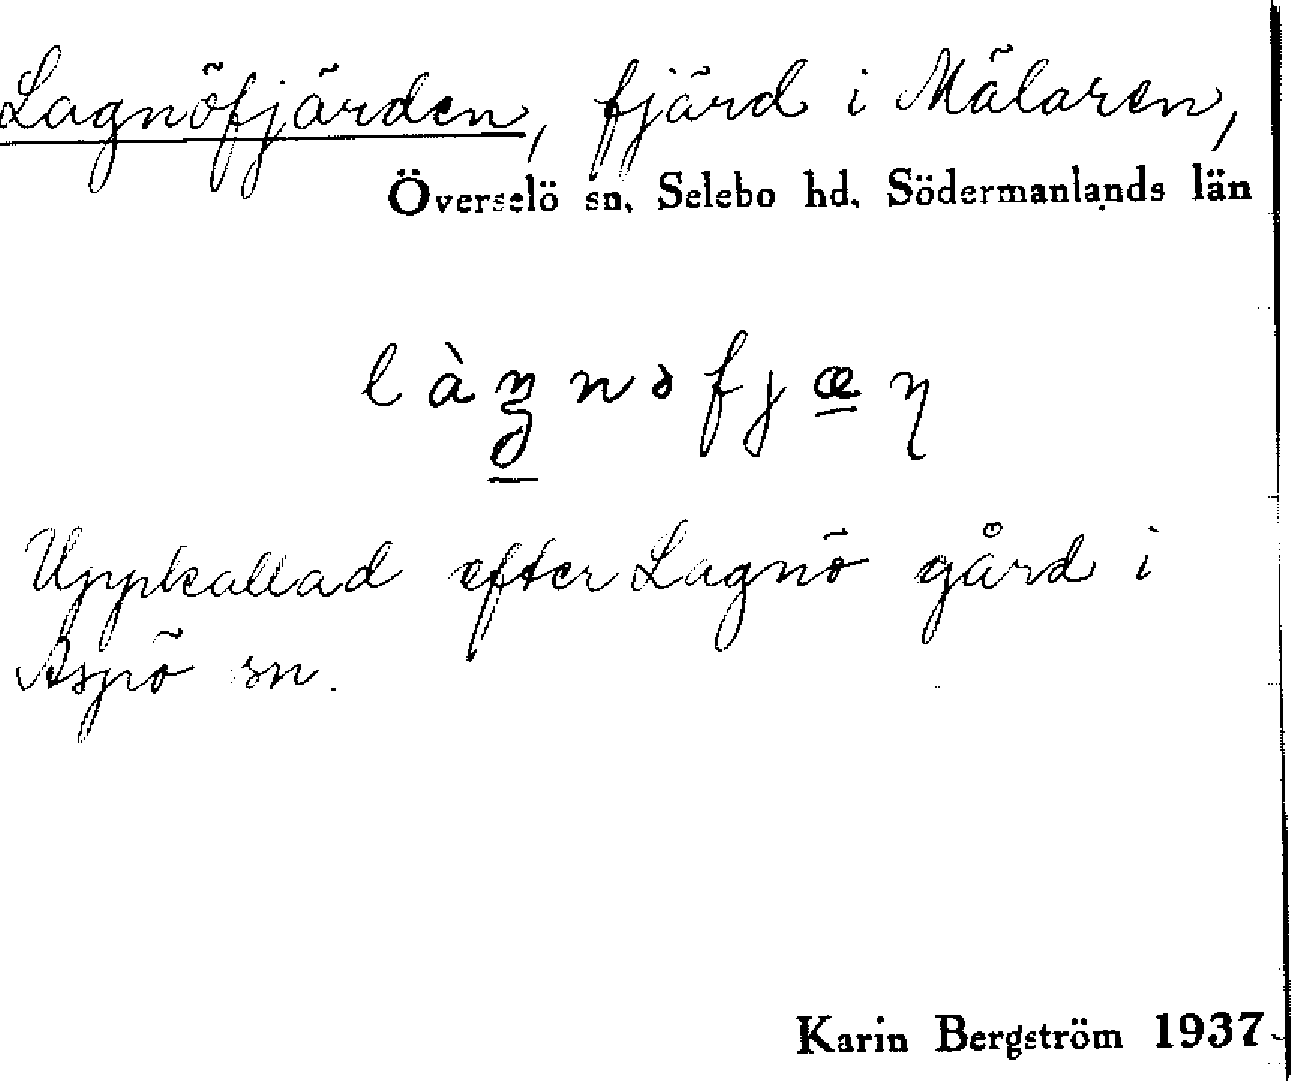 Lagnöfjärden, fjärd i Mälaren,
Överselö sn, Selebo hd, Södermanlands län
Uppkallad efter Lagnö gård i
Aspö sn.
Karin Bergström 1937